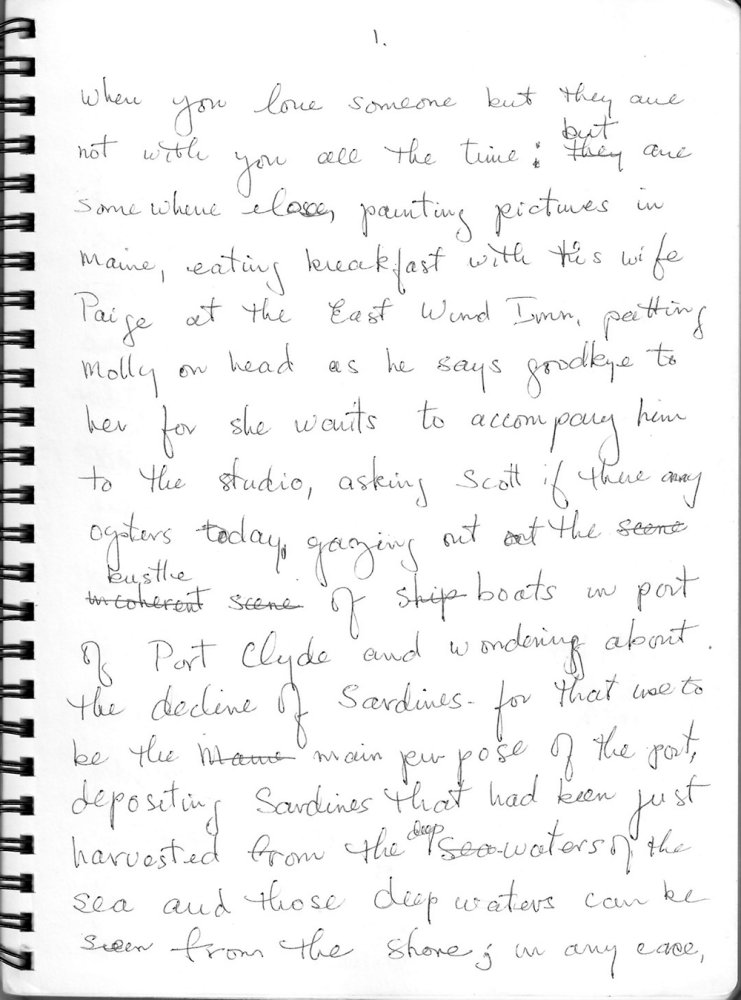 1.
When you love someone but they are
but
not with you all the time; they are
somewhere close, painting pictures in
Maine, eating breakfast with his wife
Paige at the East Wind Inn, patting
Molly on head as he says goodbye to
her for she wants to accompany him
to the studio, asking Scott if there any
oysters today, gazing out at the scene
bustle
incoherent scene of ship boats in port
of Port Clyde and wondering about
the decline of Sardines - for that use to
be the Maine main purpose of the port,
depositing Sardines that had been just
deep
harvested from the sea waters of the
sea and those deep waters can be
seen from the shore; in any case,